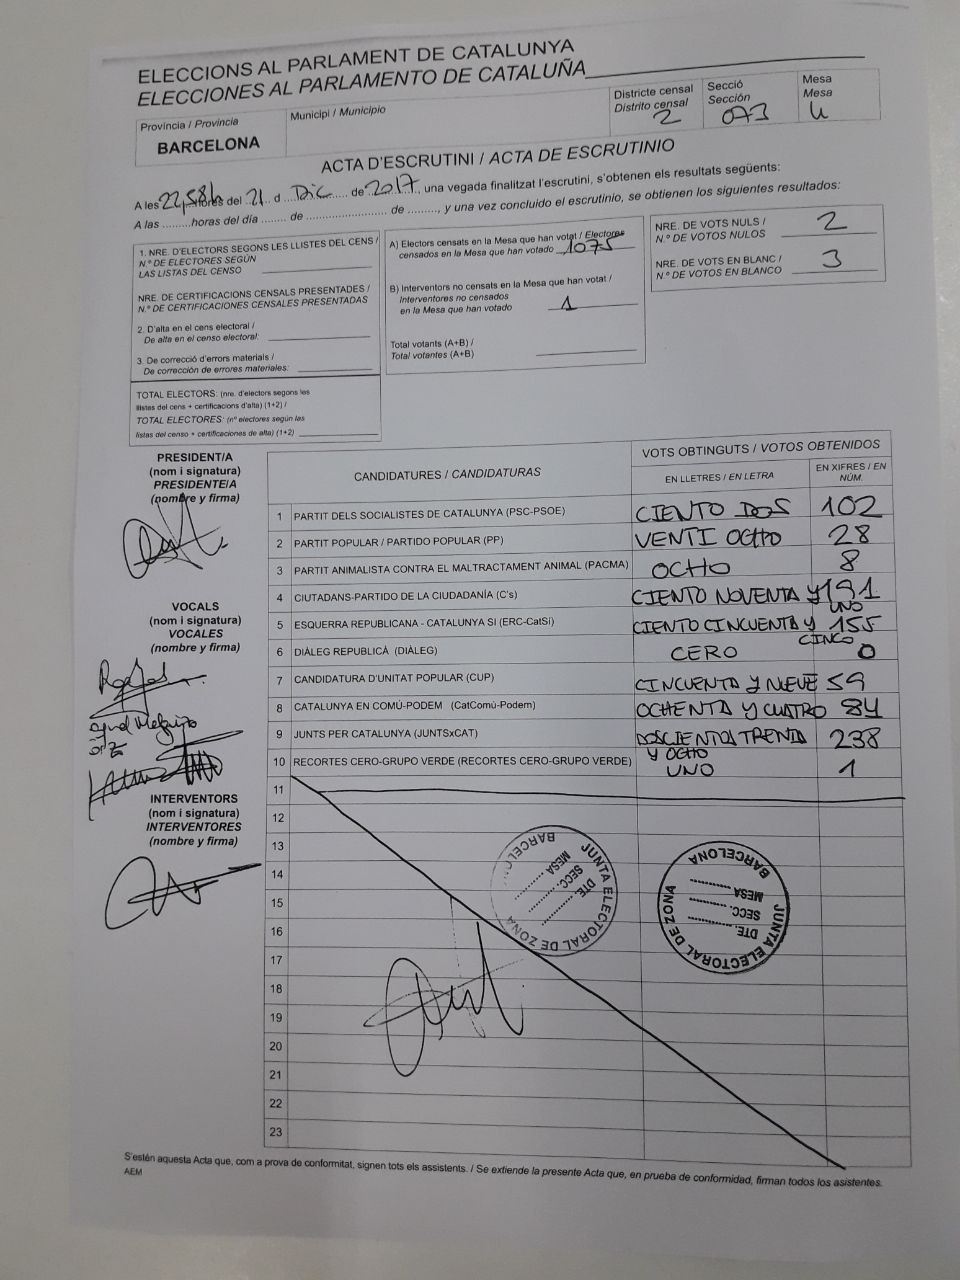 ELECCIONS AL PARLAMENT DE CATALUNYA
ELECCIONES AL PARLAMENTO DE CATALUÑA
Provincia / Provincia
BARCELONA
Municipi / Municipio
Districte censal
Distrito censal
2
Secció
Sección
073
Mesa
Mesa
U
ACTA D'ESCRUTINI / ACTA DE ESCRUTINIO
A les 22,58h hores del 21 d Dic de 2017, una vegada finalitzat l'escrutini, s'obtenen els resultats següents:
A las .........horas del día ........ de ......................... de ........., y una vez concluido el escrutinio, se obtienen los siguientes resultados:
1. NRE. D'ELECTORS SEGONS LES LLISTES DEL CENS /
N.º DE ELECTORES SEGÚN
LAS LISTAS DEL CENSO
NRE. DE CERTIFICACIONS CENSALS PRESENTADES /
N.º DE CERTIFICACIONES CENSALES PRESENTADAS
2. D'alta en el cens electoral /
De alta en el censo electoral:
3. De correcció d'errors materials /
De corrección de errores materiales:
TOTAL ELECTORS: (nre. d'electors segons les
llistes del cens + certificacions d'alta) (1+2) /
TOTAL ELECTORES: (nº electores según las
listas del censo + certificaciones de alta) (1+2)
A) Electors censats en la Mesa que han votat / Electores
censados en la Mesa que han votado 1075
B) Interventors no censats en la Mesa que han votat /
Interventores no censados
en la Mesa que han votado 1
Total votants (A+B) /
Total votantes (A+B)
NRE. DE VOTS NULS /
N.º DE VOTOS NULOS 2
NRE. DE VOTS EN BLANC /
N.º DE VOTOS EN BLANCO 3
PRESIDENT/A
(nom i signatura)
PRESIDENTE/A
(nombre y firma)
VOCALS
(nom i signatura)
VOCALES
(nombre y firma)
INTERVENTORS
(nom i signatura)
INTERVENTORES
(nombre y firma)
CANDIDATURES / CANDIDATURAS
VOTS OBTINGUTS / VOTOS OBTENIDOS
EN LLETRES / EN LETRA
EN XIFRES / EN NÚM.
1 PARTIT DELS SOCIALISTES DE CATALUNYA (PSC-PSOE) CIENTO DOS 102
2 PARTIT POPULAR / PARTIDO POPULAR (PP) VENTI OCHO 28
3 PARTIT ANIMALISTA CONTRA EL MALTRACTAMENT ANIMAL (PACMA) OCHO 8
4 CIUTADANS-PARTIDO DE LA CIUDADANÍA (C's) CIENTO NOVENTA Y UNO 191
5 ESQUERRA REPUBLICANA - CATALUNYA SI (ERC-CatSí) CIENTO CINCUENTA Y CINCO 155
6 DIÀLEG REPUBLICÀ (DIÀLEG) CERO 0
7 CANDIDATURA D'UNITAT POPULAR (CUP) CINCUENTA Y NUEVE 59
8 CATALUNYA EN COMÚ-PODEM (CatComú-Podem) OCHENTA Y CUATRO 84
9 JUNTS PER CATALUNYA (JUNTSxCAT) DOSCIENTOS TRENTA Y OCHO 238
10 RECORTES CERO-GRUPO VERDE (RECORTES CERO-GRUPO VERDE) UNO 1
11
12
13
14
15
16
17
18
19
20
21
22
23
JUNTA ELECTORAL DE ZONA
BARCELONA
DTE. ..........
SECC. ..........
MESA ..........
JUNTA ELECTORAL DE ZONA
BARCELONA
DTE. ..........
SECC. ..........
MESA ..........
S'estén aquesta Acta que, com a prova de conformitat, signen tots els assistents. / Se extiende la presente Acta que, en prueba de conformidad, firman todos los asistentes.
AEM